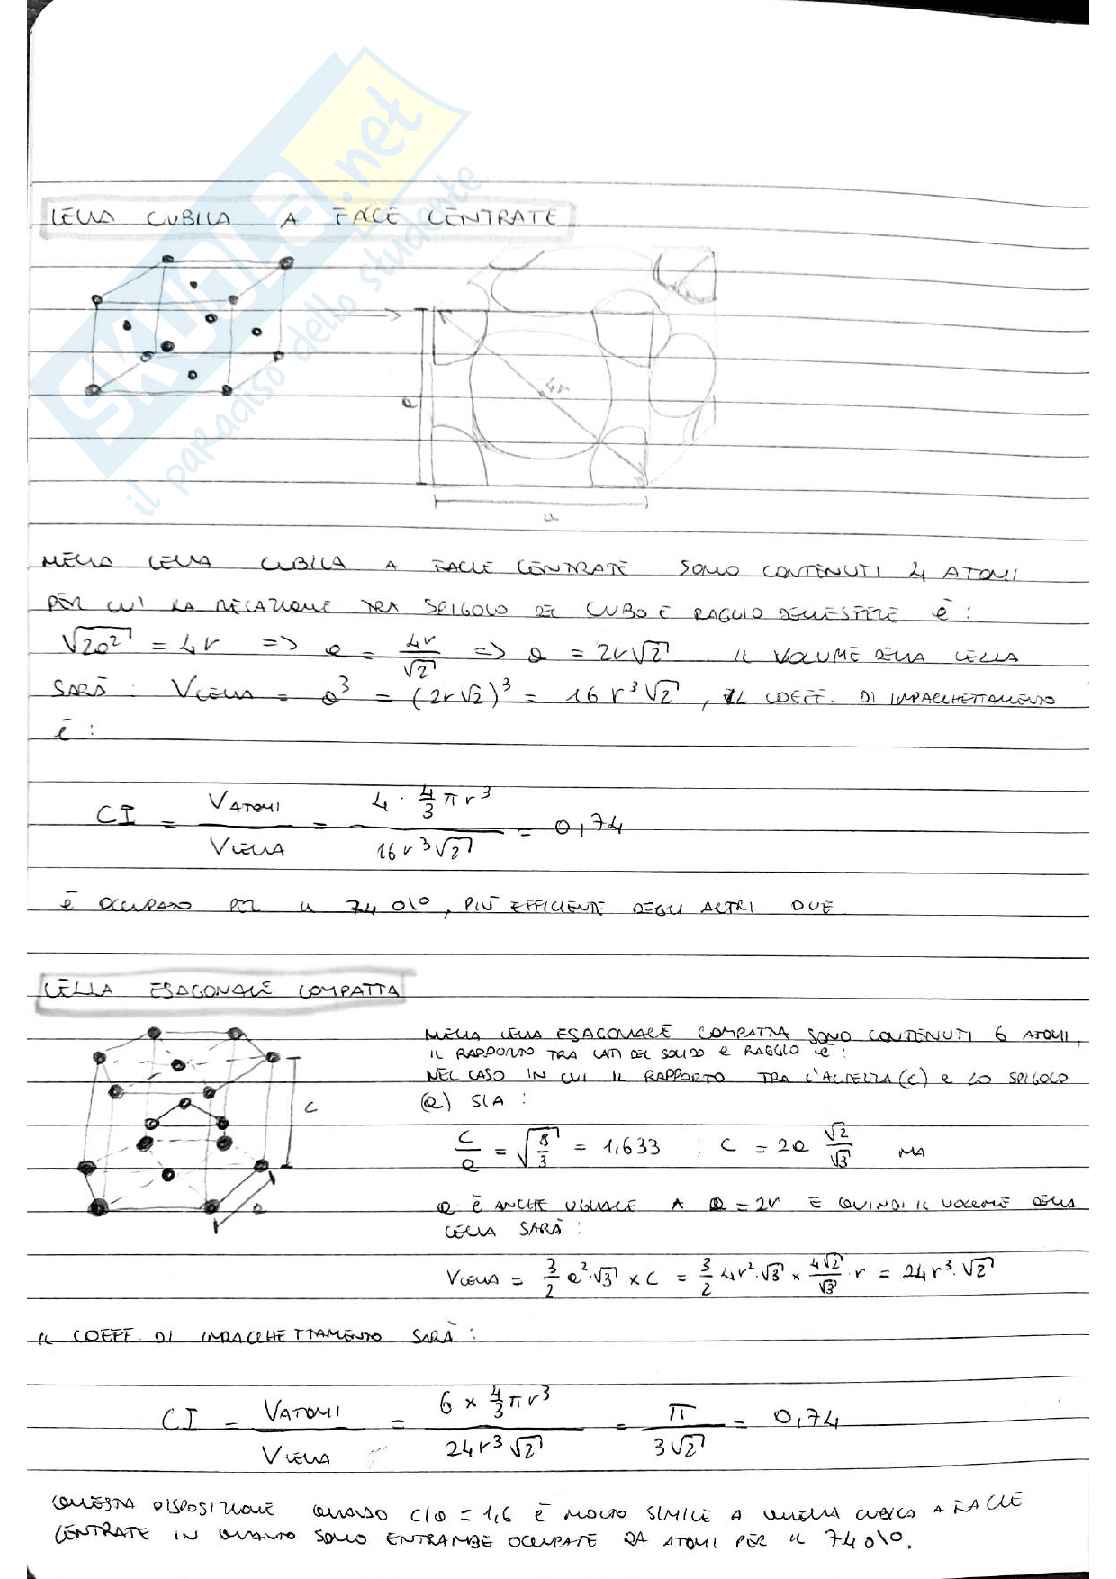 SKUOLA.net
il paradiso dello studente
CELLA CUBICA A FACCE CENTRATE
4r
a
a
NELLA CELLA CUBICA A FACCE CENTRATE SONO CONTENUTI 4 ATOMI
PER CUI LA RELAZIONE TRA SPIGOLO DEL CUBO E RAGGIO DELLE SFERE È:
√2a² = 4r => a = 4r/√2 => a = 2r√2 IL VOLUME DELLA CELLA
SARÀ: VCELLA = a³ = (2r√2)³ = 16r³√2, IL COEFF. DI IMPACCHETTAMENTO
È:
CI = VATOMI/VCELLA = 4 · 4/3 π r³ / 16r³√2 = 0,74
È OCCUPATO PER IL 74 0\0, PIÙ EFFICIENTE DEGLI ALTRI DUE
CELLA ESAGONALE COMPATTA
C
a
NELLA CELLA ESAGONALE COMPATTA SONO CONTENUTI 6 ATOMI,
IL RAPPORTO TRA LATI DEL SOLIDO E RAGGIO È:
NEL CASO IN CUI IL RAPPORTO TRA L'ALTEZZA (C) E LO SPIGOLO
(a) SIA:
C/a = √8/3 = 1,633 : C = 2a √2/√3 MA
a È ANCHE UGUALE A a = 2r E QUINDI IL VOLUME DELLA
CELLA SARÀ:
VCELLA = 3/2 a² · √3 × C = 3/2 4r² · √3 × 4√2/√3 · r = 24r³ · √2
IL COEFF. DI IMPACCHETTAMENTO SARÀ:
CI = VATOMI/VCELLA = 6 × 4/3 π r³ / 24r³√2 = π/3√2 = 0,74
QUESTA DISPOSIZIONE QUANDO C/a = 1,6 È MOLTO SIMILE A QUELLA CUBICA A FACCE
CENTRATE IN QUANTO SONO ENTRAMBE OCCUPATE DA ATOMI PER IL 74 0\0.